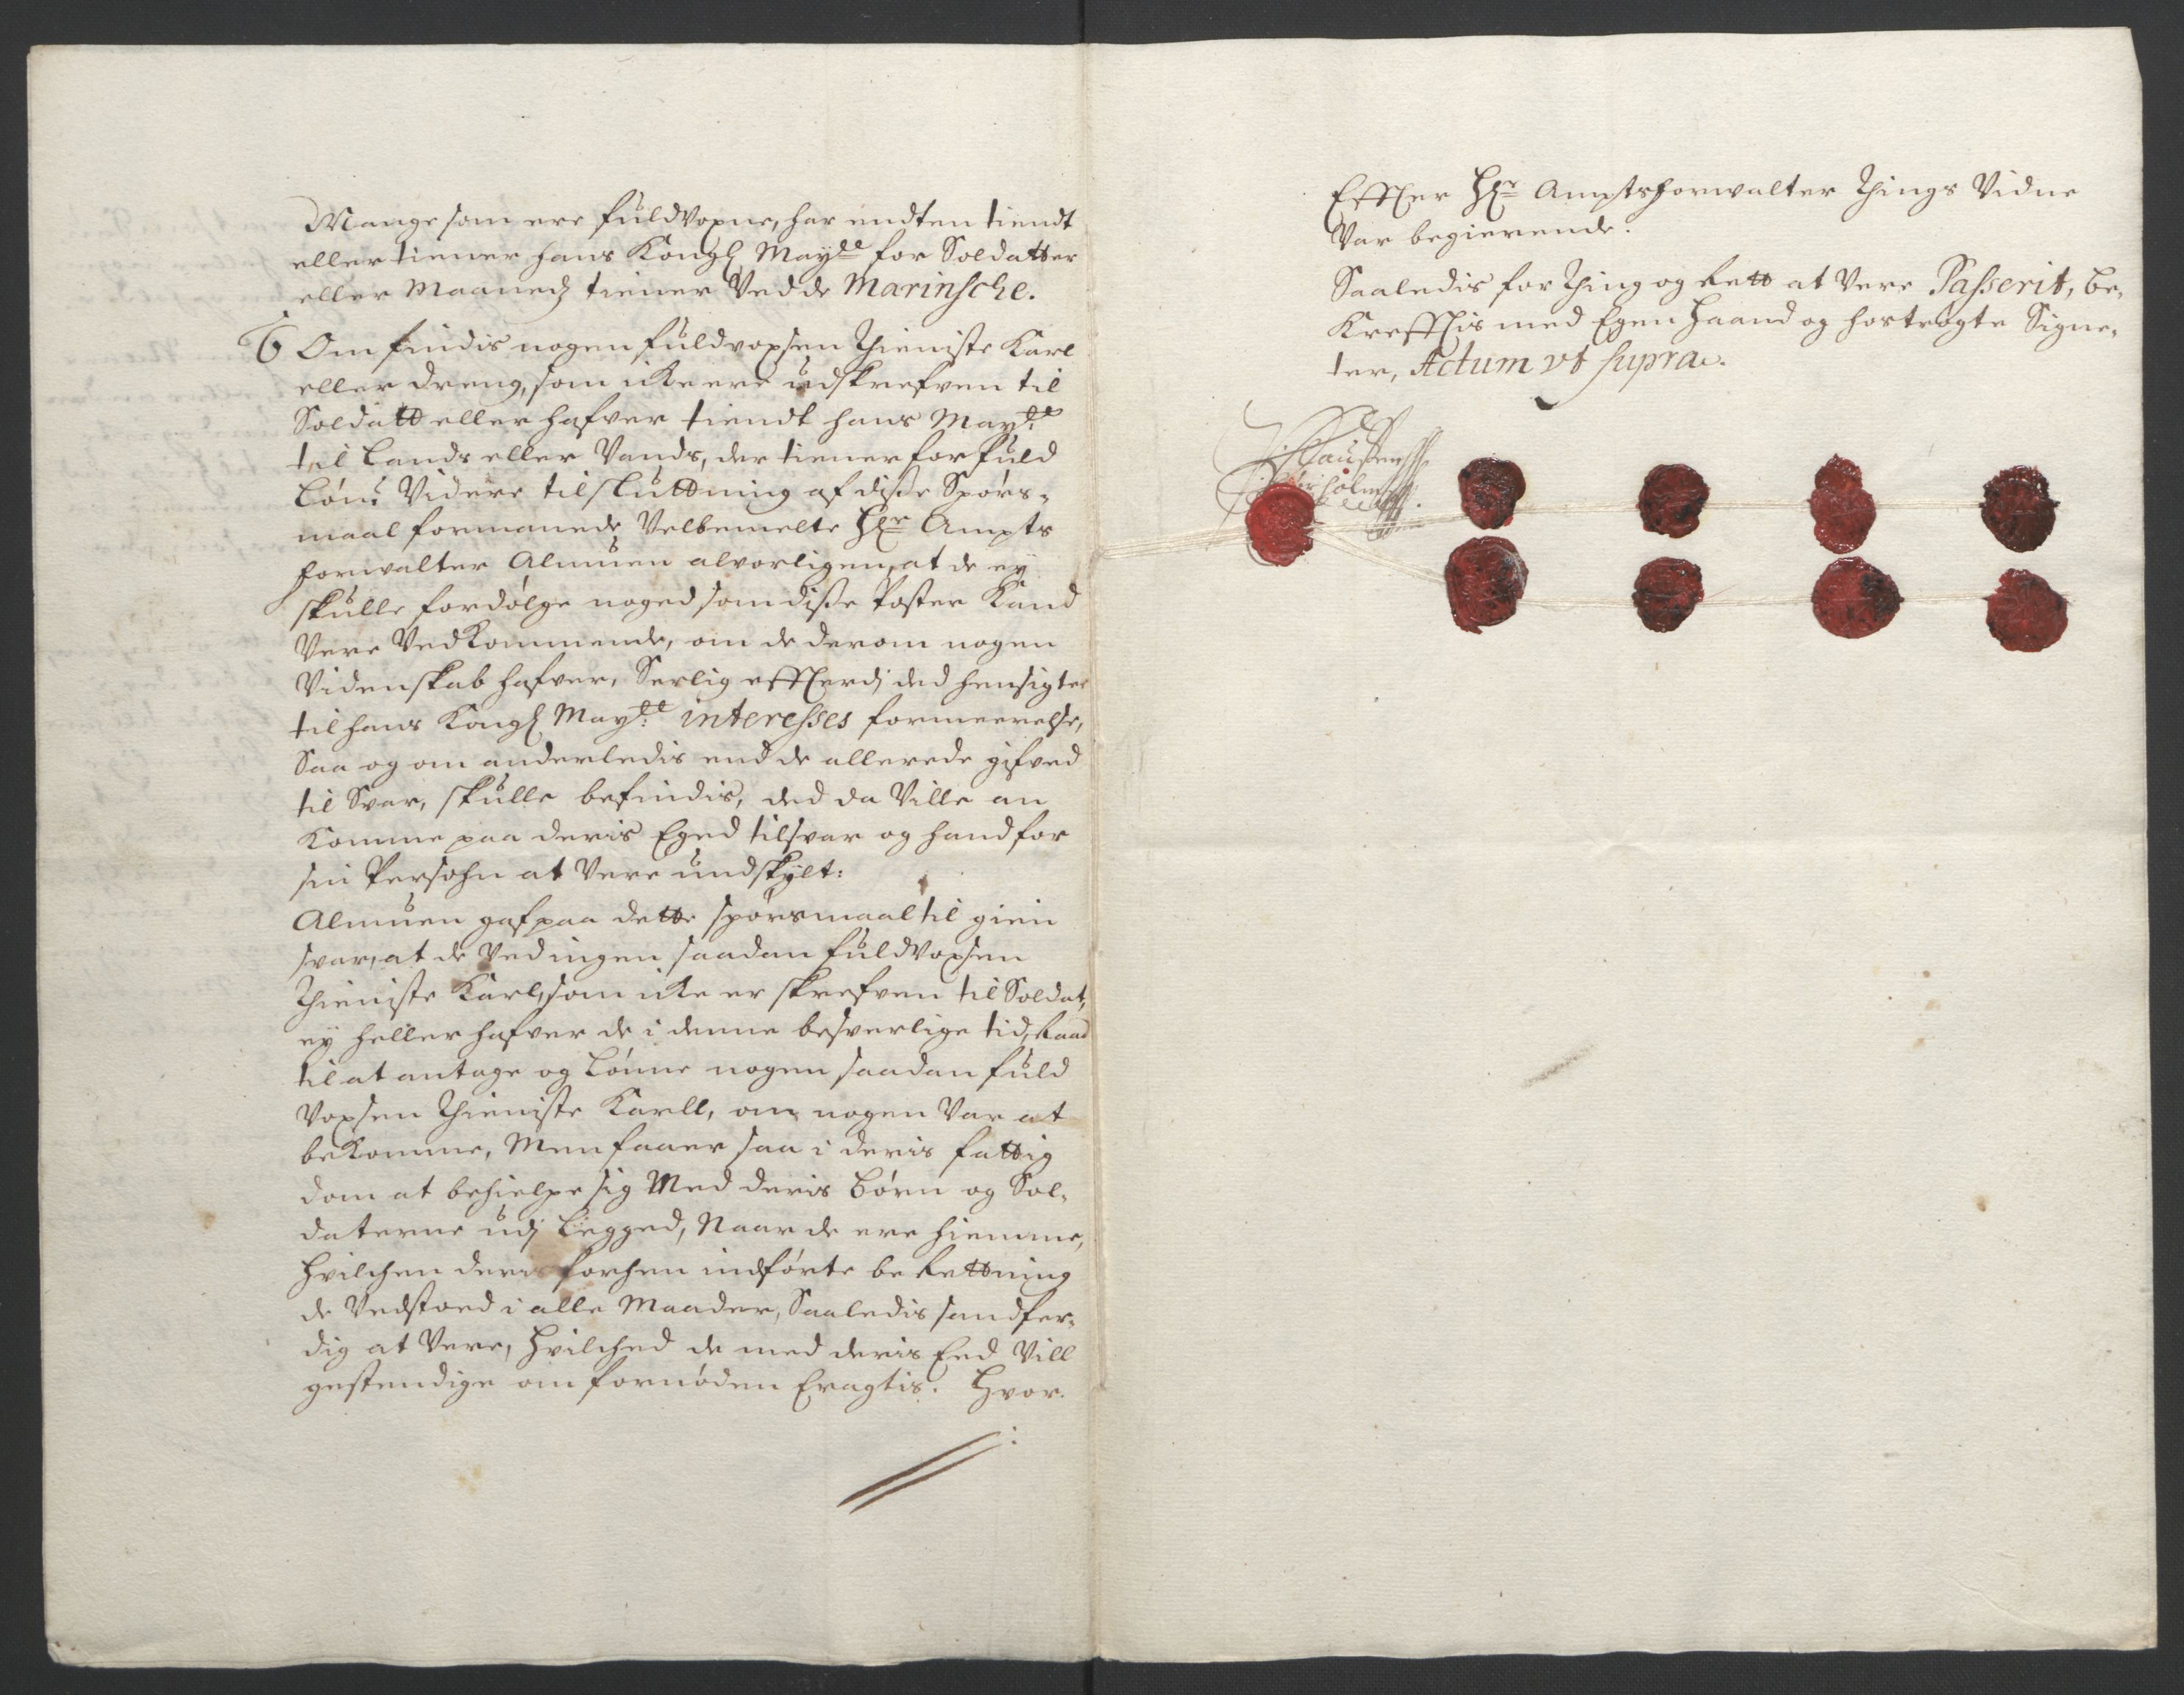 Mange som ere fuldVoxne, har endten tiendt
eller tiener hans Kongl May:tt for Soldatter
eller Maaneds tiener Ved de Marinsche.
6 Om findis nogen fuldvoxsen Thieniste Karl
eller dreng, som icke ere udskrefven til
Soldatt eller hafver tiendt hans May:tt
til Lands eller Vands, der tiener for fuld
Løn? Videre til sluttning af disse Spørs-
maal formanede Velbemelte Hr Ampts
forvalter Almuen alvorligen, at de ey
skulle fordølge noged som disse Poster Kand
Vere Vedkommende, om de derom nogen
Videnskab hafver, Serlig effterdj ded hensigter
til hans Kongl May:tt interesses formeerelse,
Saa og om anderledis end de allerede gifved
til Svar, skulle befindis, ded da Ville an
Komme paa deris Eged tilsvar og hand for
sin Persohn at Vere undskylt:
Almuen gaf paa dette spørsmaal til gien
svar, at de Ved ingen saadan fuldVoxsen
Thieniste Karl, som icke er skrefven til Soldat,
ey heller hafver de i denne besverlige tid, Raad
til at antage og Lønne nogen saadan fuld
Voxsen Thieniste Karll, om nogen Var at
bekomme, Men faaer saa i deris fattig
dom at behielpe sig Med deris Børn og Sol-
daterne udj Legged, Naar de ere hiemme,
Hvilchen deris forhen indførte berettning
de Vedstoed i alle Maader, Saaledis sandfer-
dig at Vere, Hvilched de med deris Eed Vill
gestendige om fornøden Eragtis. Hvor-
Effter Hr Amptsforvalter Things Vidne
Var begierende.
Saaledis for Thing og Rett at Vere Passerit, be-
Krefftis med Egen Haand og hostrøgte Signe-
ter, Actum vt supra.